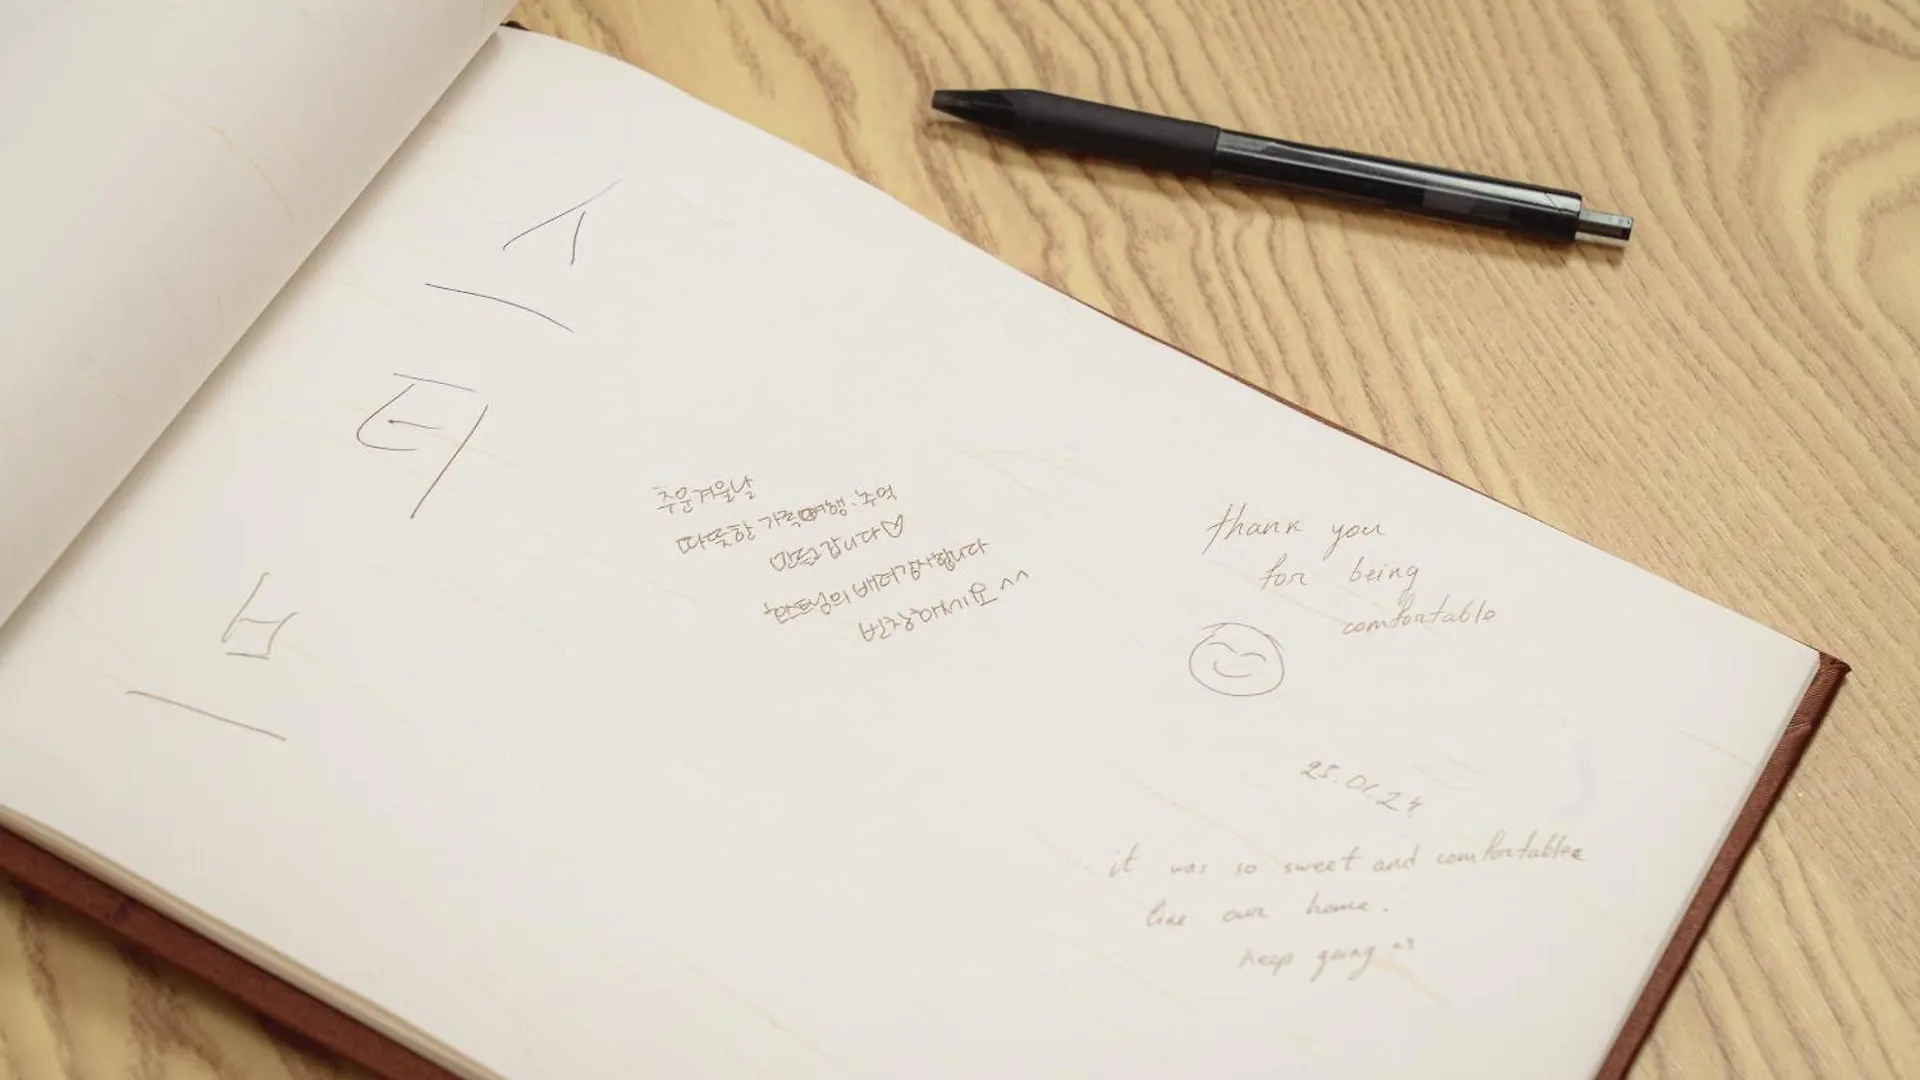 스
터
브
추운겨울날
따뜻한 가족여행·추억
만들고 갑니다♡
호스트님의 배려감사합니다
번창하십시요^^
thank you
for being
comfortable
25.01.24
it was so sweet and comfortable
like our home.
keep going